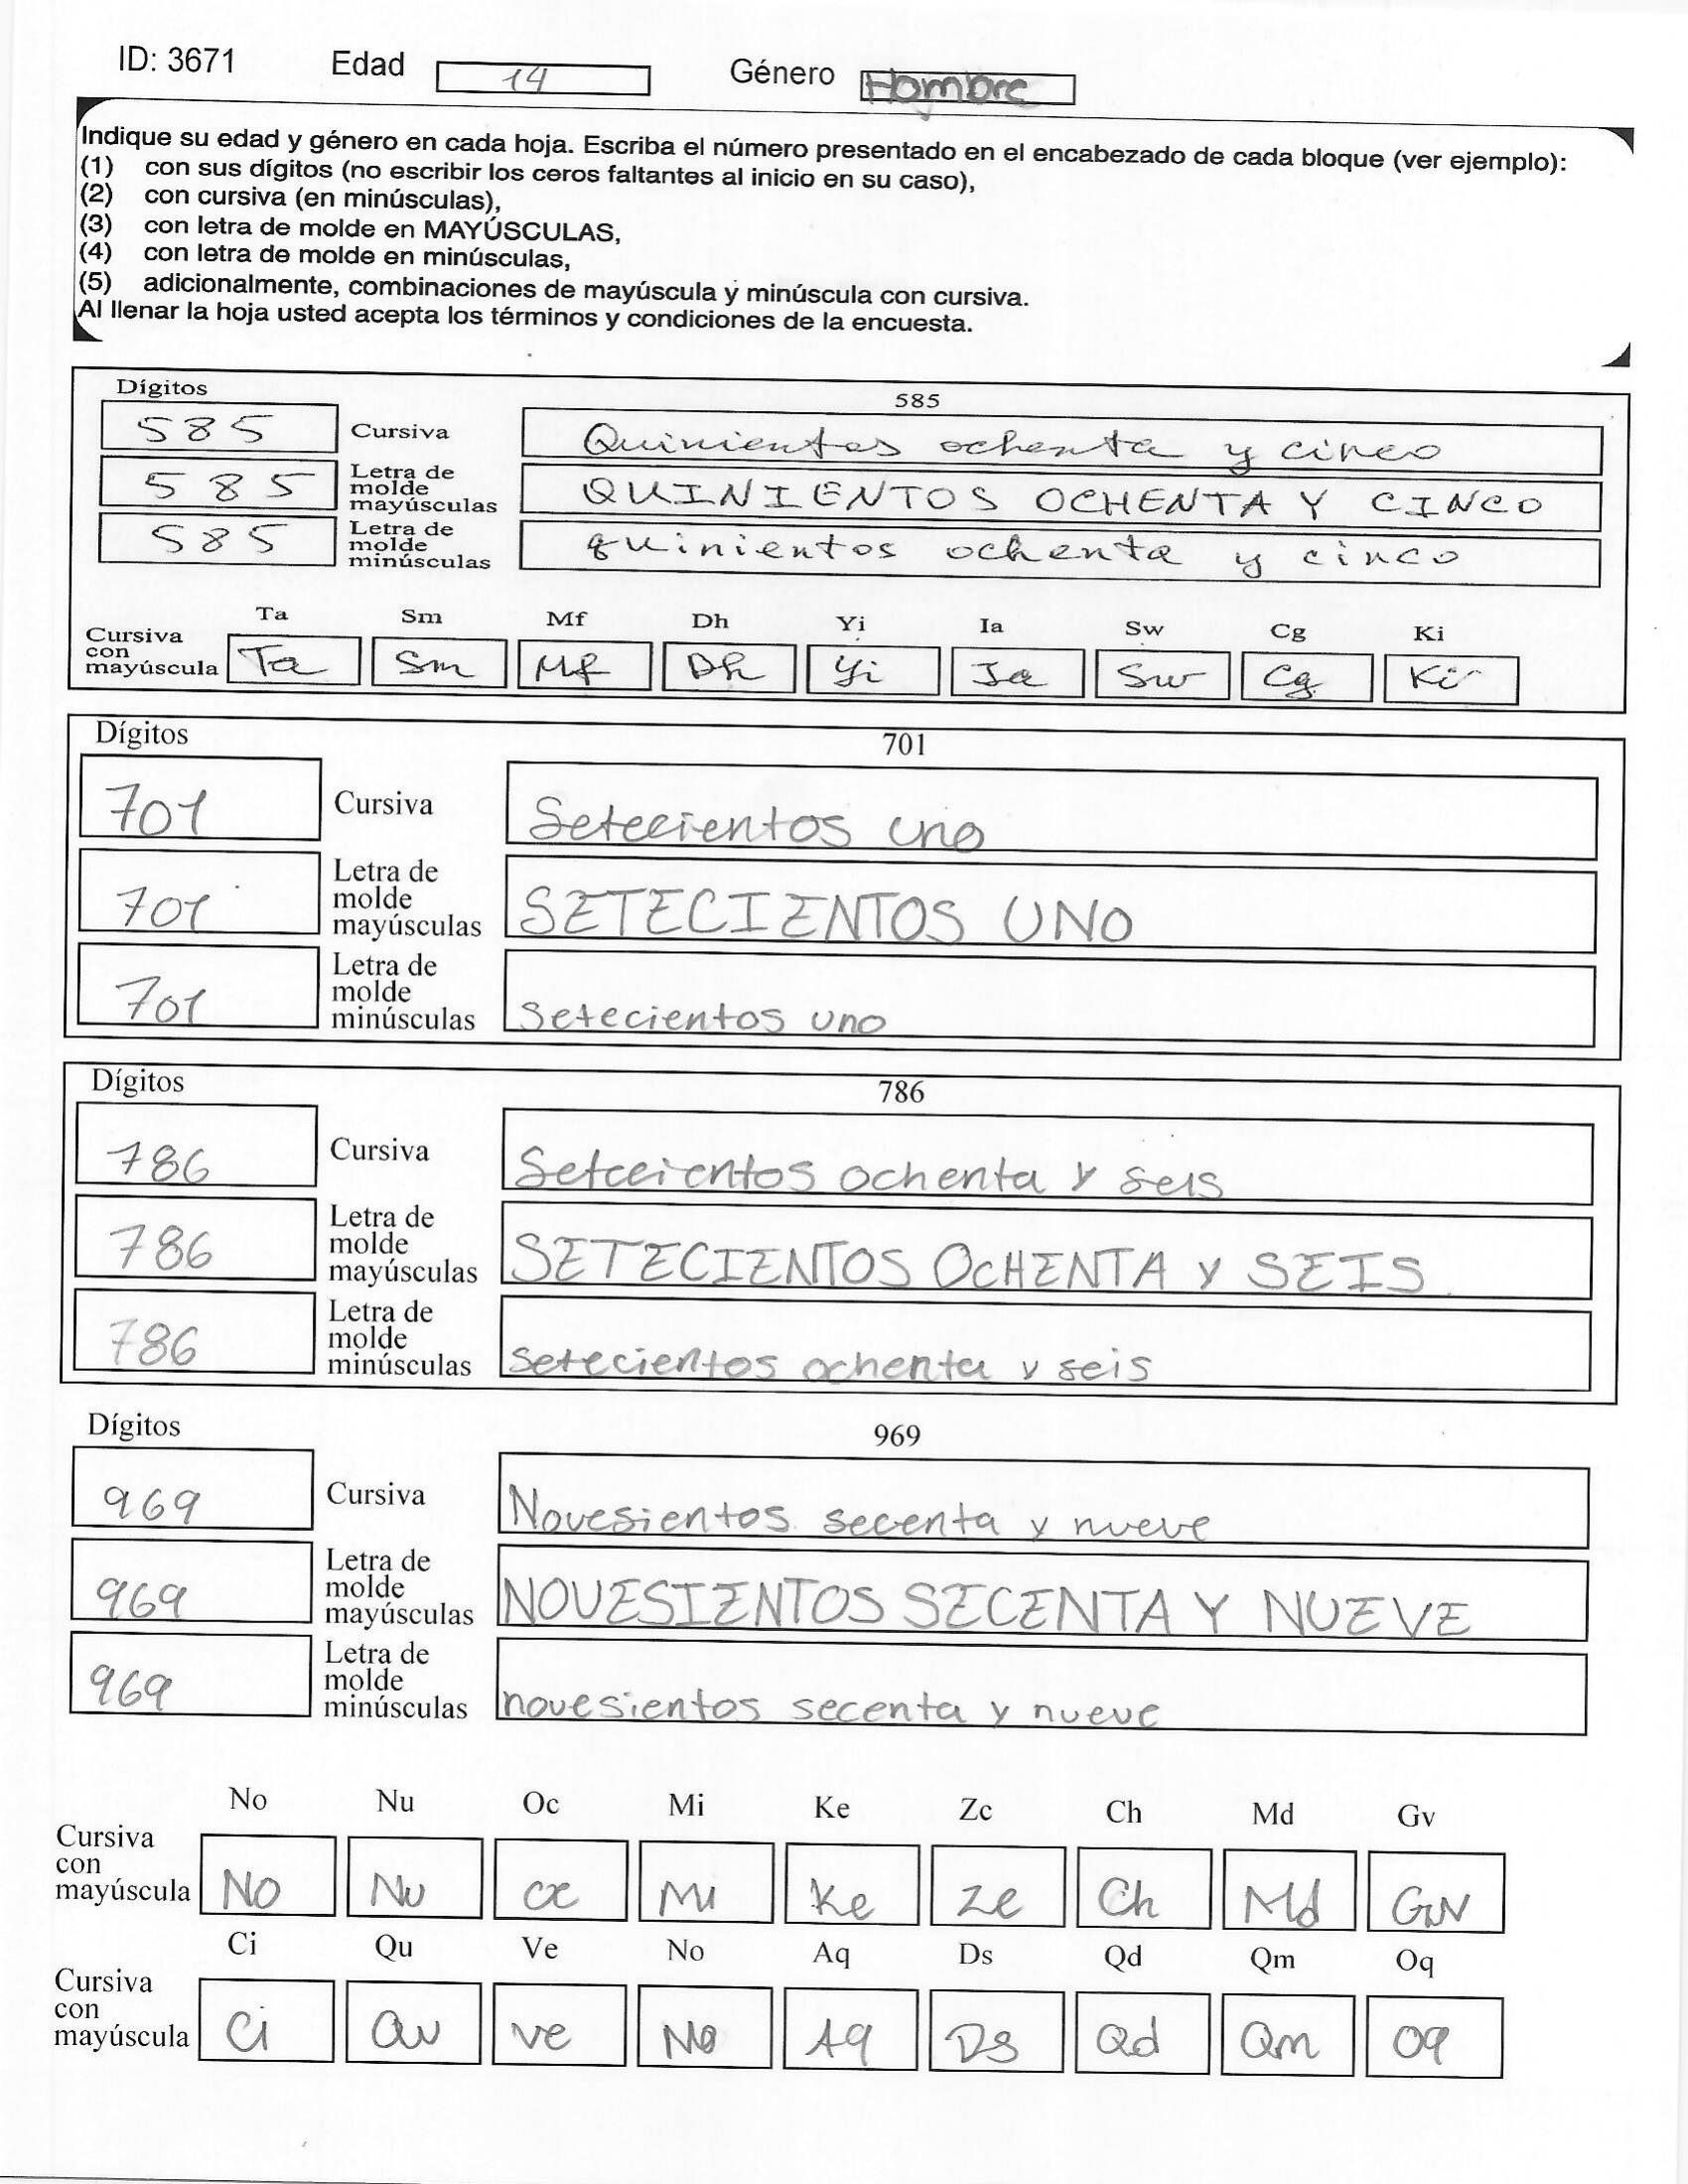 ID: 3671 Edad 14 Género Hombre
Indique su edad y género en cada hoja. Escriba el número presentado en el encabezado de cada bloque (ver ejemplo):
(1) con sus dígitos (no escribir los ceros faltantes al inicio en su caso),
(2) con cursiva (en minúsculas),
(3) con letra de molde en MAYÚSCULAS,
(4) con letra de molde en minúsculas,
(5) adicionalmente, combinaciones de mayúscula y minúscula con cursiva.
Al llenar la hoja usted acepta los términos y condiciones de la encuesta.
Dígitos 585
585 Cursiva Quinientos ochenta y cinco
585 Letra de molde mayúsculas QUINIENTOS OCHENTA Y CINCO
585 Letra de molde minúsculas quinientos ochenta y cinco
Ta Sm Mf Dh Yi Ia Sw Cg Ki
Cursiva con mayúscula Ta Sm Mf Dh Yi Ia Sw Cg Ki
Dígitos 701
701 Cursiva Setecientos uno
701 Letra de molde mayúsculas SETECIENTOS UNO
701 Letra de molde minúsculas Setecientos uno
Dígitos 786
786 Cursiva Setecientos ochenta y seis
786 Letra de molde mayúsculas SETECIENTOS OCHENTA Y SEIS
786 Letra de molde minúsculas setecientos ochenta y seis
Dígitos 969
969 Cursiva Novesientos secenta y nueve
969 Letra de molde mayúsculas NOVESIENTOS SECENTA Y NUEVE
969 Letra de molde minúsculas novesientos secenta y nueve
No Nu Oc Mi Ke Zc Ch Md Gv
Cursiva con mayúscula No Nu Oc Mi Ke Ze Ch Md Gv
Ci Qu Ve No Aq Ds Qd Qm Oq
Cursiva con mayúscula Ci Qu Ve No Aq Ds Qd Qm Oq